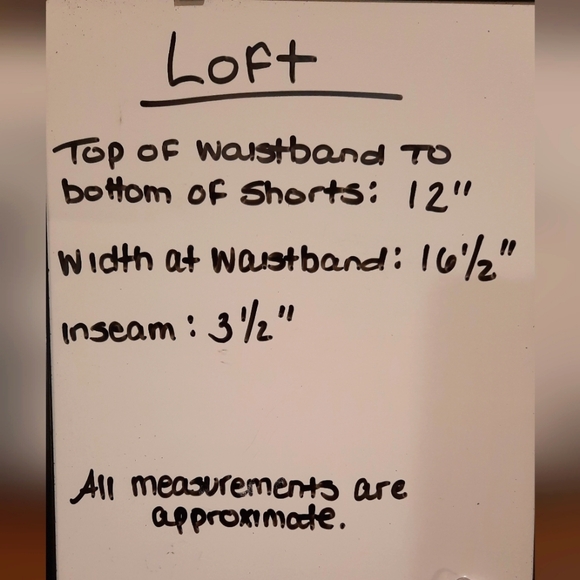 Loft
Top of waistband to
bottom of shorts: 12"
Width at waistband: 16 1/2"
inseam: 3 1/2"
All measurements are
approximate.